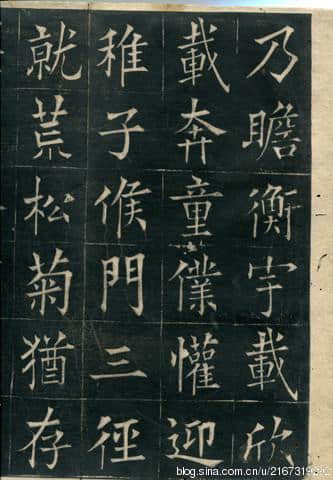 乃瞻衡宇載欣
載奔童僕懽迎
稚子候門三徑
就荒松菊猶存